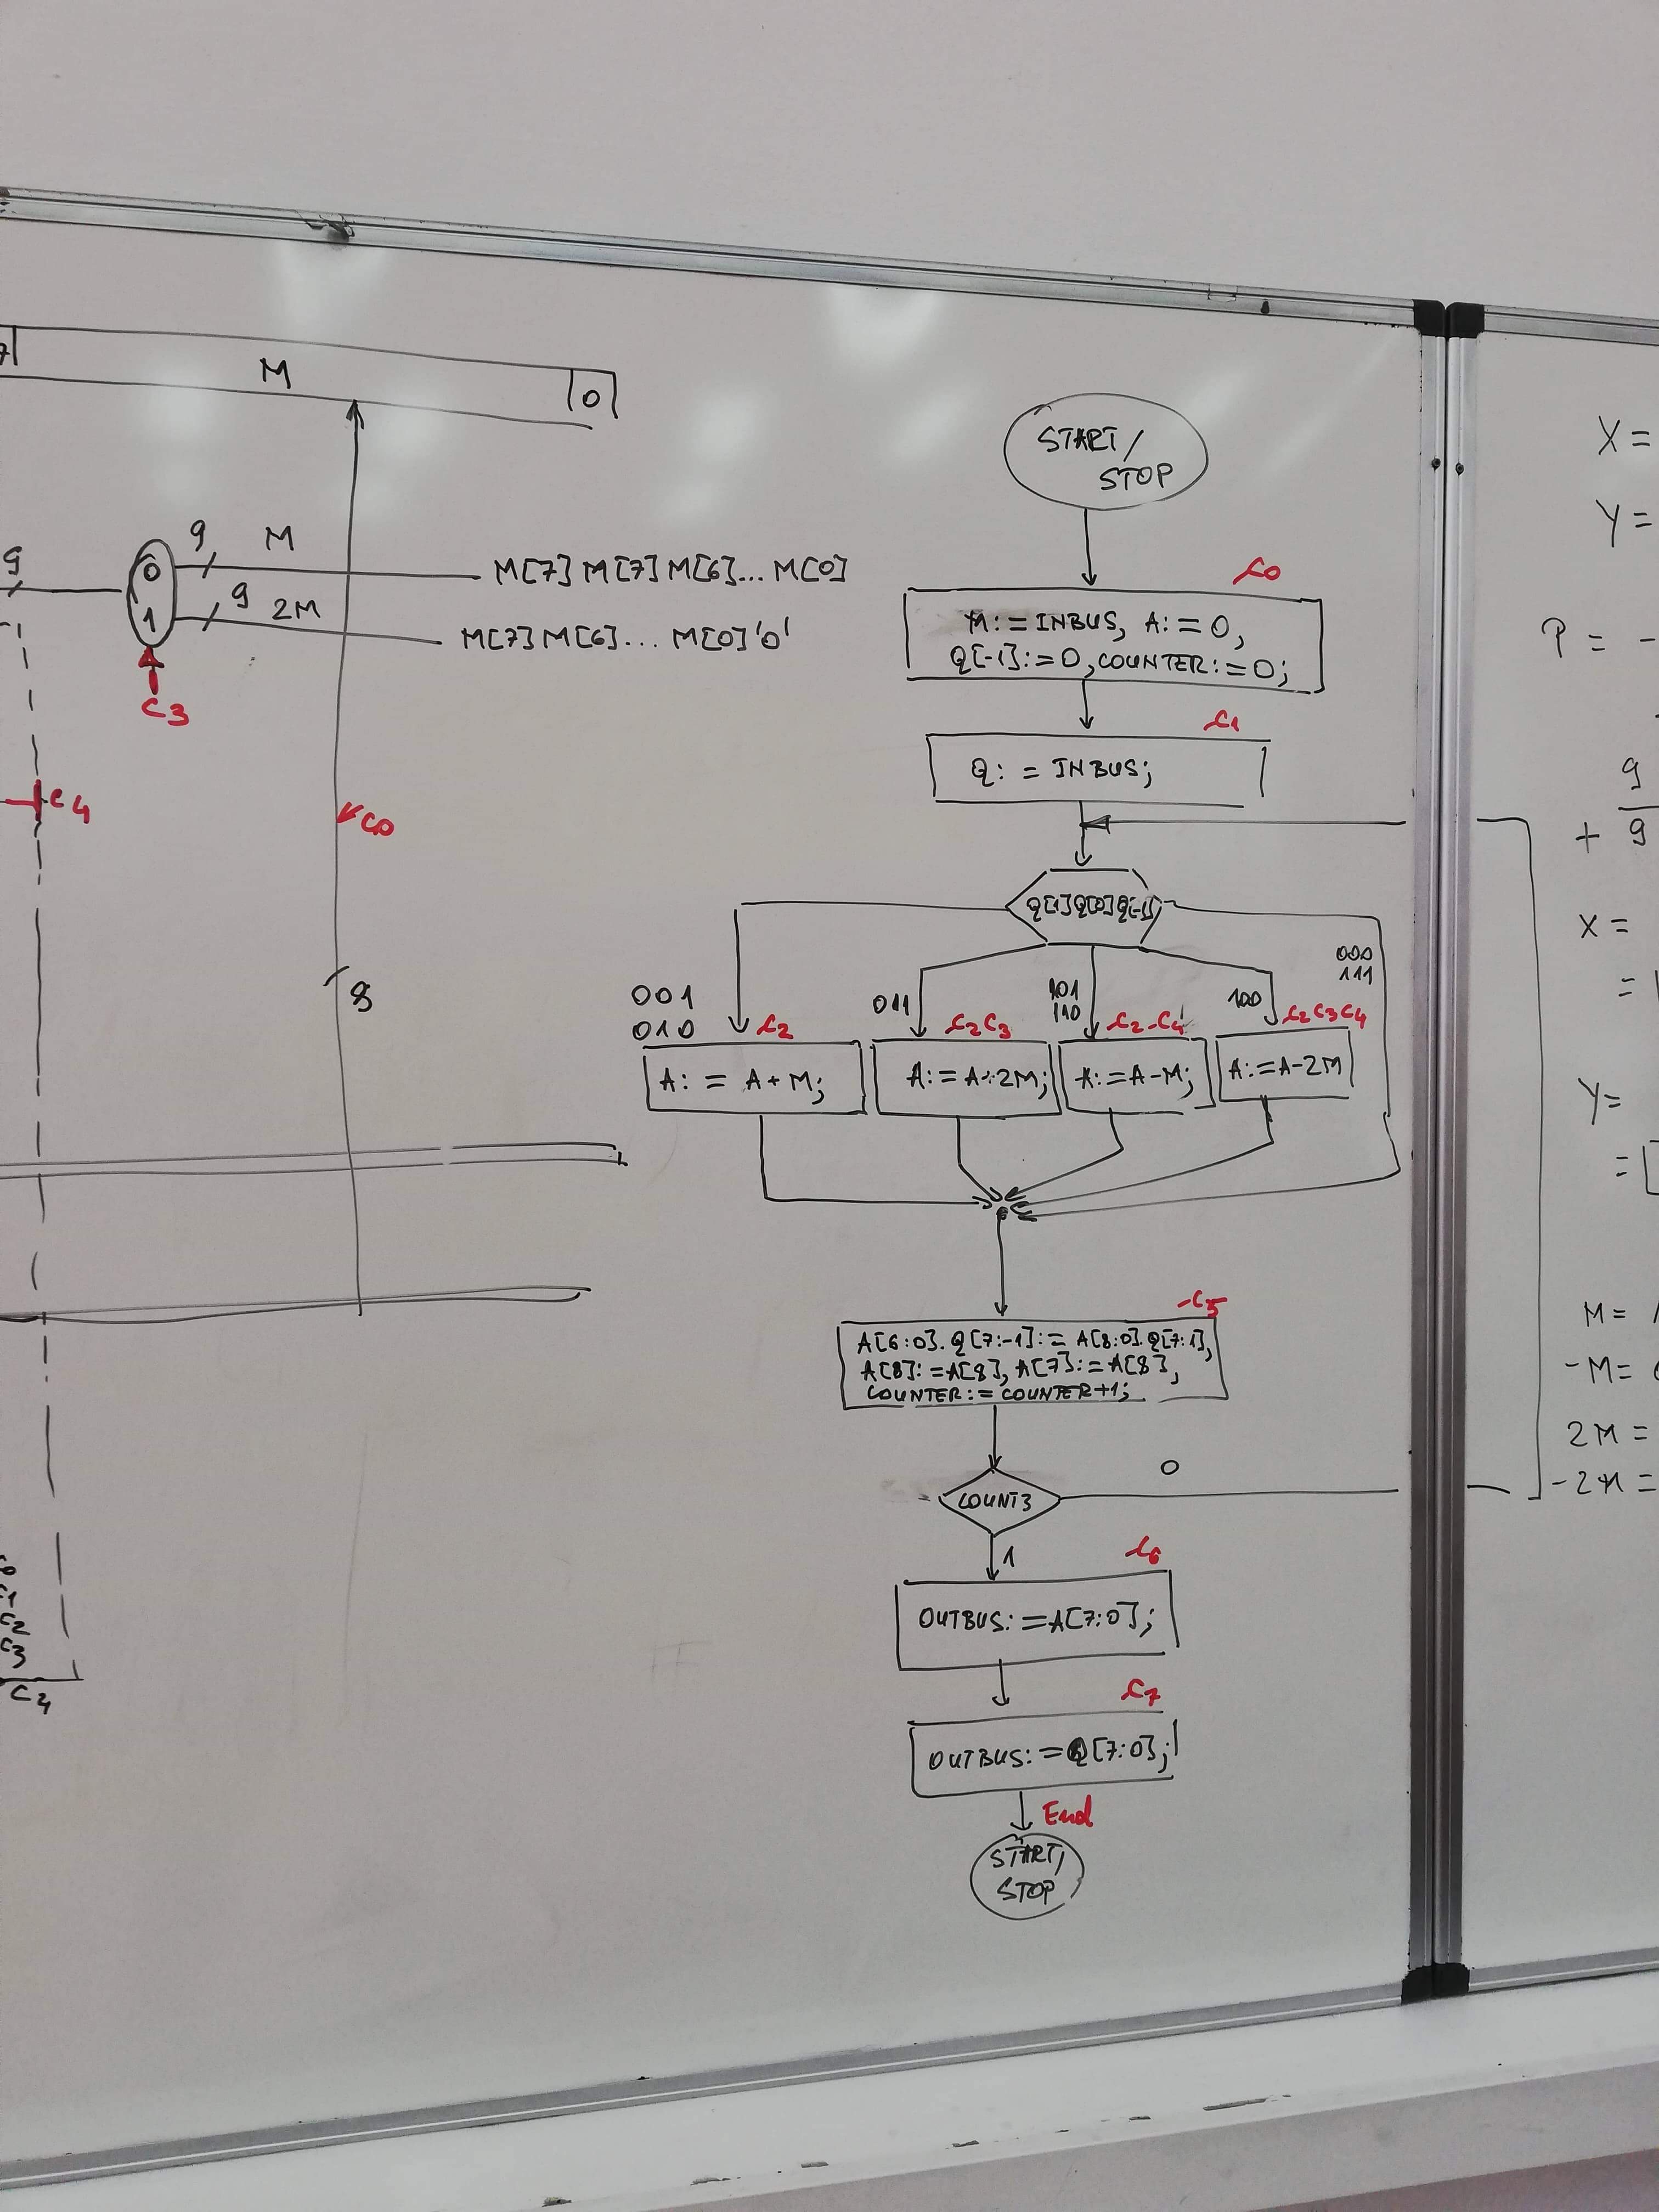 7
M
0
9
9
M
0
1
9
2M
M[7] M[7] M[6]... M[0]
M[7] M[6]... M[0]'0'
C3
C4
C0
8
C1
C2
C3
C4
START/
STOP
C0
M:=INBUS, A:=0,
Q[-1]:=0, COUNTER:=0;
C1
Q:=INBUS;
Q[1]Q[0]Q[-1]
001
010
C2
A:=A+M;
011
C2C3
A:=A+2M;
101
110
C2C4
A:=A-M;
100
C2C3C4
A:=A-2M
000
111
C5
A[6:0].Q[7:-1]:=A[8:0].Q[7:1],
A[8]:=A[8], A[7]:=A[8],
COUNTER:=COUNTER+1;
COUNT3
0
1
C6
OUTBUS:=A[7:0];
C7
OUTBUS:=Q[7:0];
End
START/
STOP
X=
Y=
P= -
9
+ 9
X=
=
Y=
=
M=
-M=
2M=
-2M=